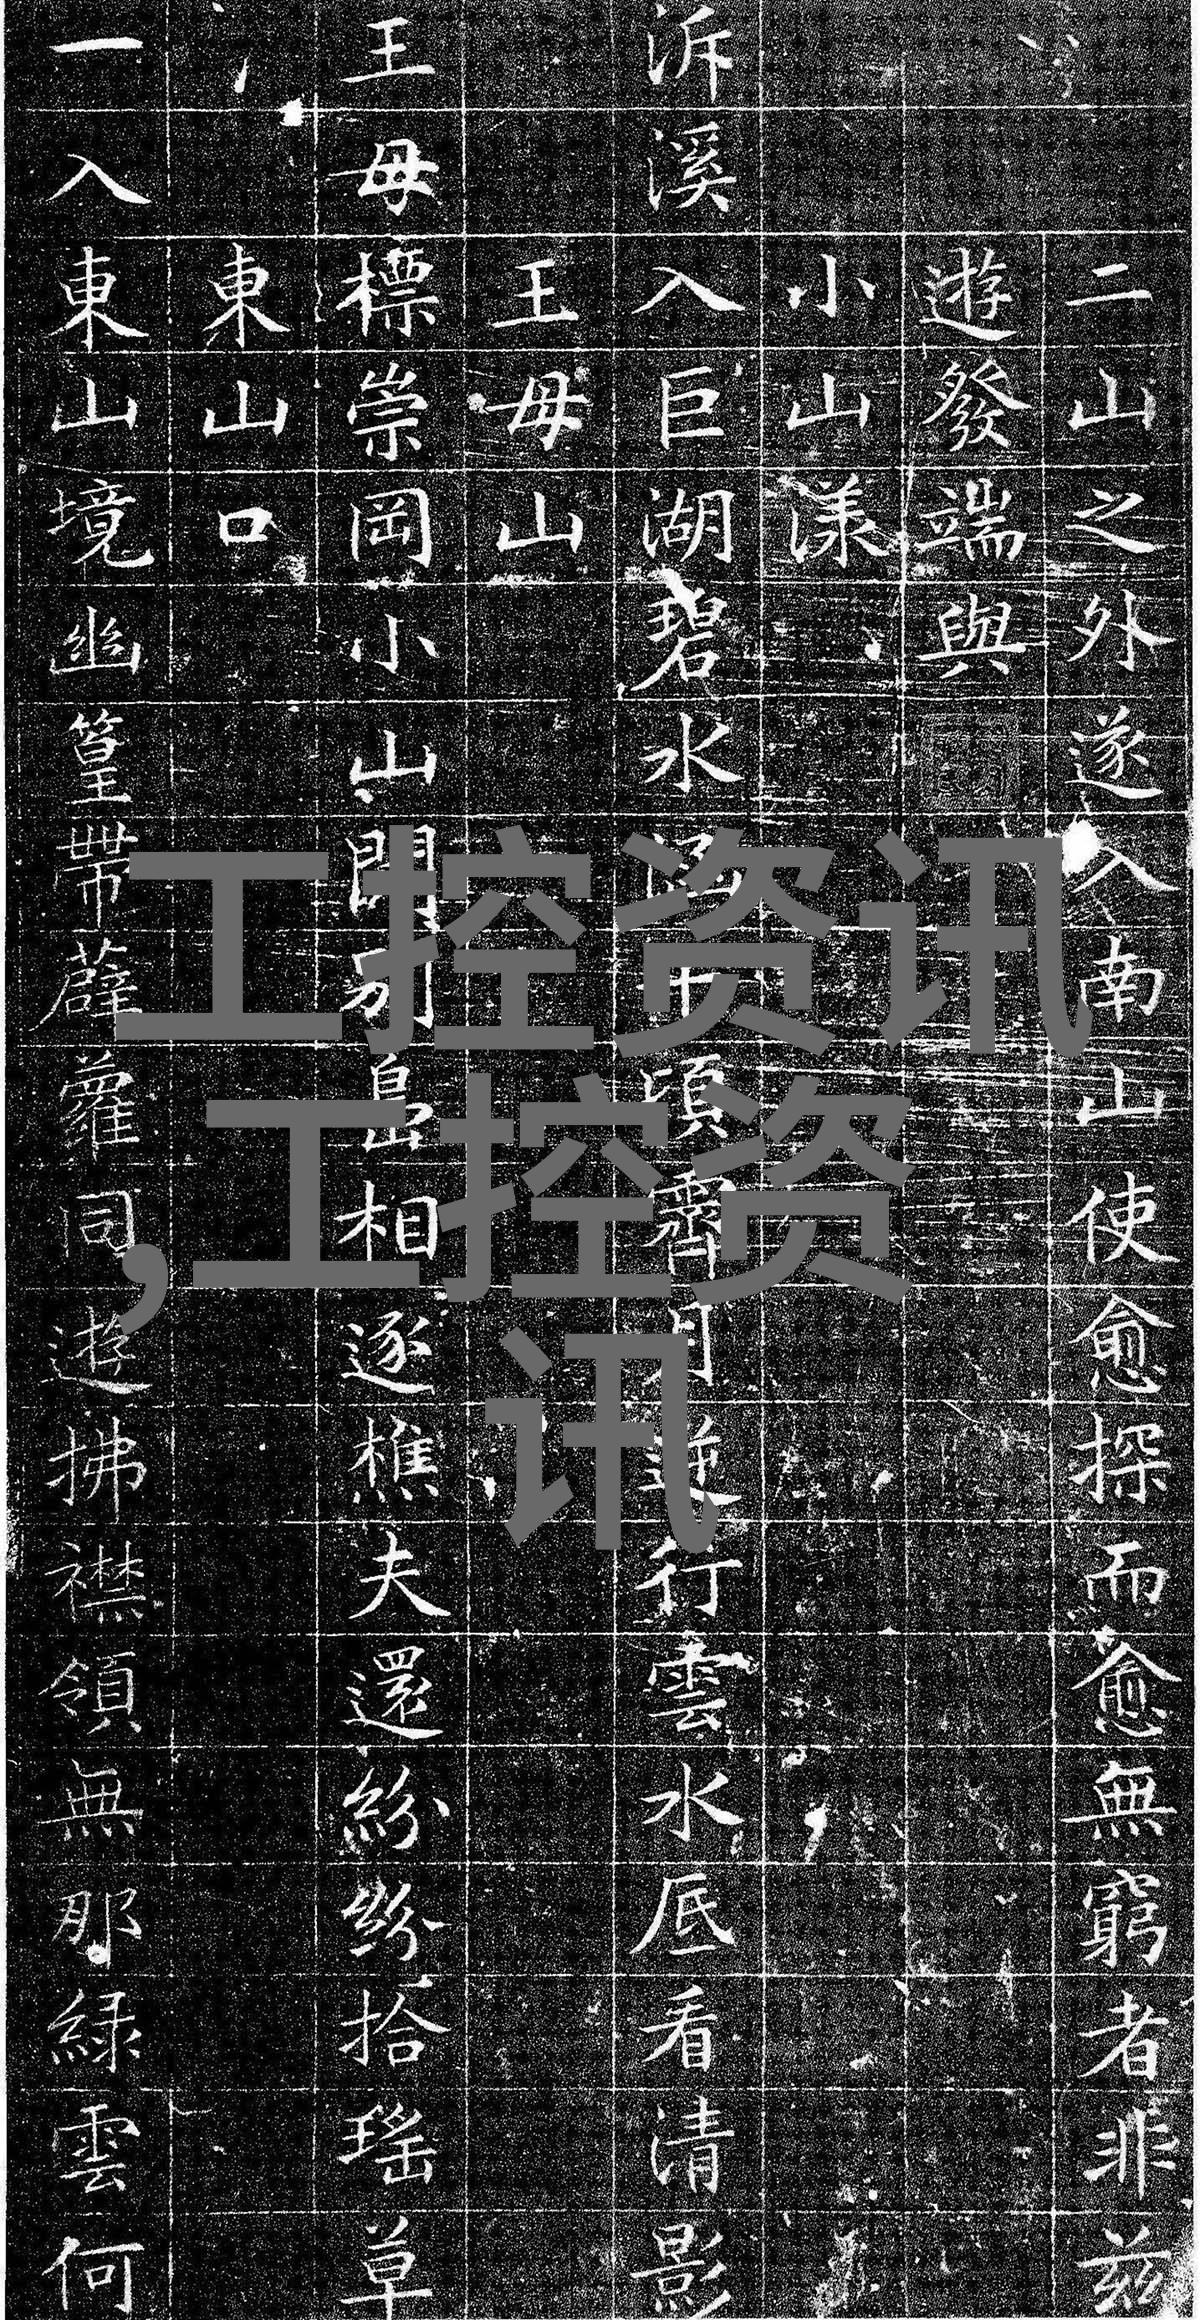 二山之外遂入南山使愈探而愈無窮者非兹
遊發端與
小山漾
泝溪入巨湖碧水涵千頃霽月逆行雲水底看清影
王母山
王母標崇岡小山開別島相逐樵夫還紛紛拾瑤草
東山口
一入東山境幽篁帶薜蘿同遊拂襟領無那緑雲何
工控资讯
,工控资
讯